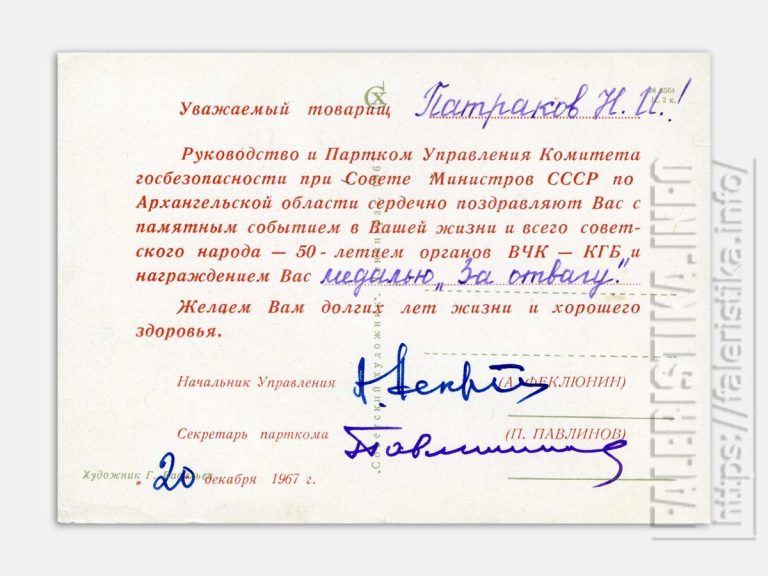 Уважаемый товарищ Патраков Н. И.!
Руководство и Партком Управления Комитета
госбезопасности при Совете Министров СССР по
Архангельской области сердечно поздравляют Вас с
памятным событием в Вашей жизни и всего совет-
ского народа — 50-летием органов ВЧК — КГБ и
награждением Вас медалью „За отвагу."
Желаем Вам долгих лет жизни и хорошего
здоровья.
Начальник Управления (А. ФЕКЛЮНИН)
Секретарь парткома (П. ПАВЛИНОВ)
Художник Г.
„20 декабря 1967 г.
Советский художник
FALERISTIKA.INFO
https://faleristika.info/